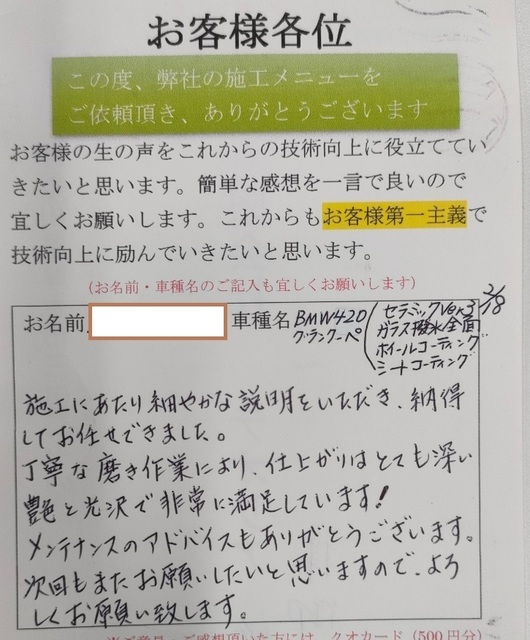 お客様各位
この度、弊社の施工メニューを
ご依頼頂き、ありがとうございます
お客様の生の声をこれからの技術向上に役立ててい
きたいと思います。簡単な感想を一言で良いので
宜しくお願いします。これからもお客様第一主義で
技術向上に励んでいきたいと思います。
(お名前・車種名のご記入も宜しくお願いします)
お名前 車種名 BMW420
グランクーペ
セラミックVer3
ガラス撥水全面
ホイールコーティング
シートコーティング
2/18
施工にあたり細やかな説明をいただき、納得
してお任せできました。
丁寧な磨き作業により、仕上がりはとても深い
艶と光沢で非常に満足しています!
メンテナンスのアドバイスもありがとうございます。
次回もまたお願いしたいと思いますので、よろ
しくお願い致します。
ご意見・ご感想頂いた方には、クオカード(500円分)